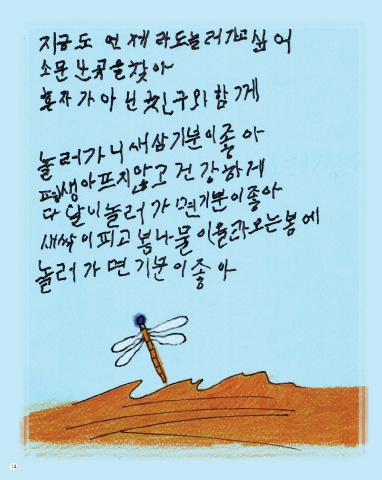 지금도 언제라도 놀러가고 싶어
소문난 곳을 찾아
혼자가 아닌 친구와 함게
놀러가니 새삼 기분이 좋아
평생 아프지 않고 건강하게
다 같이 놀러가면 기분이 좋아
새싹이 피고 봄나물이 올라오는 봄에
놀러가면 기분이 좋아
14